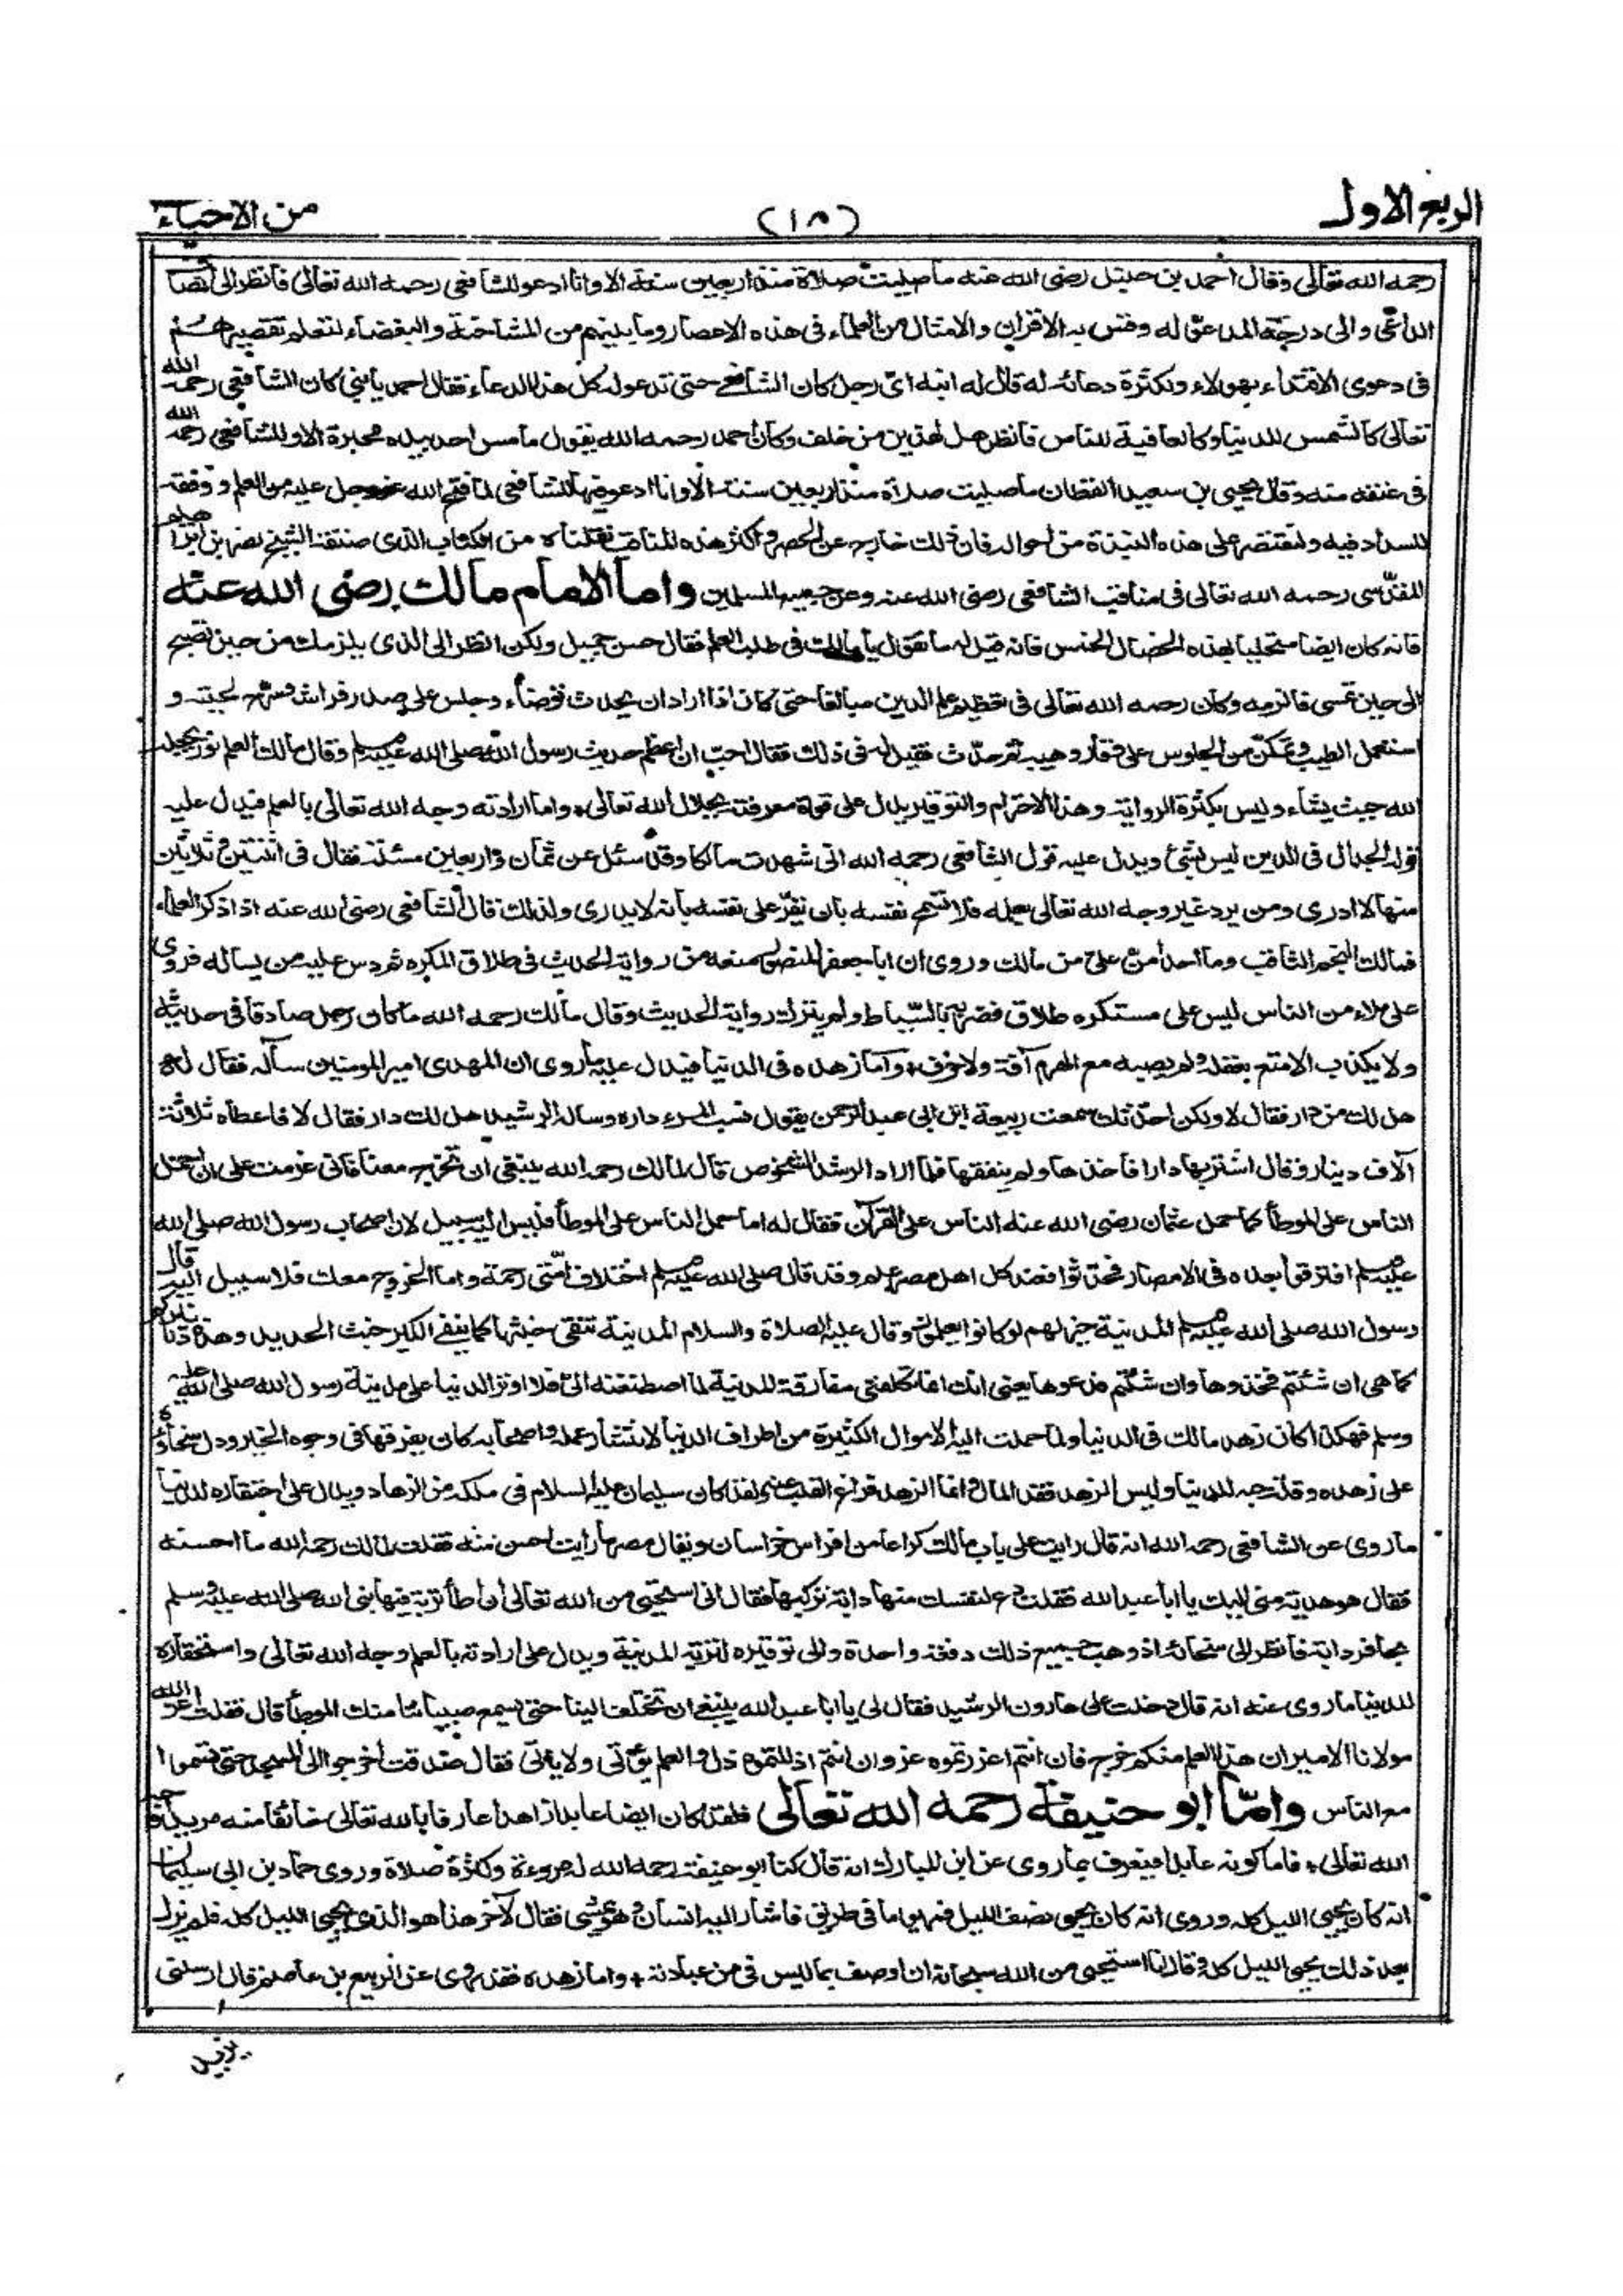 الربع الاول
(١٨)
من الاحياء
رحمه الله تعالى وقال احمد بن حنبل رضى الله عنه ما صليت صلاة منذ اربعين سنة الا وانا ادعو للشافعى رحمه الله تعالى فانظر الى انصاف
الداعى والى درجة المدعو له وقس به الاقران والامثال من العلماء فى هذه الاعصار وما بينهم من المشاحنة والبغضاء لتعلم تقصيرهم
فى دعوى الاقتداء بهولاء ولكثرة دعائه له قال له ابنه اى رجل كان الشافعى حتى تدعو له كل هذا الدعاء فقال احمد يا بنى كان الشافعى رحمه الله
تعالى كالشمس للدنيا وكالعافية للناس فانظر هل لهذين من خلف وكان احمد رحمه الله يقول ما مس احد بيده محبرة الا وللشافعى رحمه الله
فى عنقه منه وقال يحيى بن سعيد القطان ما صليت صلاة منذ اربعين سنة الا وانا ادعو فيها للشافعى لما فتح الله عز وجل عليه من العلم و وفقه
للسداد فيه ولنقتصر على هذه النبذة من احواله فان ذلك خارج عن الحصر واكثر هذه المناقب نقلناه من الكتاب الذى صنفه الشيخ نصر بن ابراهيم
المقدسى رحمه الله تعالى فى مناقب الشافعى رضى الله عنه وعن جميع المسلمين واما الامام مالك رضى الله عنه
فانه كان ايضا متحليا بهذه الخصال الخمس فانه قيل له ما تقول يا مالك فى طلب العلم فقال حسن جميل ولكن انظر الى الذى يلزمك من حين تصبح
الى حين تمسى فالزمه وكان رحمه الله تعالى فى تعظيم علم الدين مبالغا حتى كان اذا اراد ان يحدث توضاء وجلس على صدر فراشه وسرح لحيته و
استعمل الطيب وتمكن من الجلوس على وقار وهيبة ثم حدث فقيل له فى ذلك فقال احب ان اعظم حديث رسول الله صلى الله عليه وسلم وقال مالك العلم نور يجعله
الله حيث يشاء وليس بكثرة الرواية وهذا الاحترام والتوقير يدل على قوة معرفته بجلال الله تعالى واما ارادته وجه الله تعالى بالعلم فيدل عليه
قوله الجدال فى الدين ليس بشئ ويدل عليه قول الشافعى رحمه الله انى شهدت مالكا وقد سئل عن ثمان واربعين مسئلة فقال فى اثنتين وثلاثين
منها لا ادرى ومن يرد غير وجه الله تعالى بعلمه فلا تسمح نفسه بان يقر على نفسه بانه لا يدرى ولذلك قال الشافعى رضى الله عنه اذا ذكر العلماء
فمالك النجم الثاقب وما احد امن على من مالك وروى ان ابا جعفر المنصور منعه من رواية الحديث فى طلاق المكره ثم دس عليه من يساله فروى
على ملاء من الناس ليس على مستكره طلاق فضربه بالسياط ولم يترك رواية الحديث وقال مالك رحمه الله ما كان رجل صادقا فى حديثه
ولا يكذب الا متع بعقله ولم يصبه مع الهرم آفة ولا خرف واما زهده فى الدنيا فيدل عليه ما روى ان المهدى امير المومنين سأله فقال له
هل لك من دار فقال لا ولكن احدثك سمعت ربيعة ابن ابى عبد الرحمن يقول نسب المرء داره وساله الرشيد هل لك دار فقال لا فاعطاه ثلاثة
آلاف دينار وقال اشتر بها دارا فاخذها ولم ينفقها فلما اراد الرشيد الشخوص قال لمالك رحمه الله ينبغى ان تخرج معنا فانى عزمت على ان احمل
الناس على الموطأ كما حمل عثمان رضى الله عنه الناس على القرآن فقال له اما حمل الناس على الموطأ فليس اليه سبيل لان اصحاب رسول الله صلى الله
عليه وسلم افترقوا بعده فى الامصار فحدثوا فعند كل اهل مصر علم وقد قال صلى الله عليه وسلم اختلاف امتى رحمة واما الخروج معك فلا سبيل اليه قال
رسول الله صلى الله عليه وسلم المدينة خير لهم لو كانوا يعلمون وقال عليه الصلاة والسلام المدينة تنفى خبثها كما ينفى الكير خبث الحديد وهذه دنانيركم
كما هى ان شئتم فخذوها وان شئتم فدعوها يعنى انك انما تكلفنى مفارقة المدينة لما اصطنعته الى فلا اوثر الدنيا على مدينة رسول الله صلى الله عليه
وسلم فهكذا كان زهد مالك فى الدنيا ولما حملت اليه الاموال الكثيرة من اطراف الدنيا لانتشار علمه واصحابه كان يفرقها فى وجوه الخير ودل سخاؤه
على زهده وقلة حبه للدنيا وليس الزهد فقد المال وانما الزهد فراغ القلب عنه ولقد كان سليمان عليه السلام فى ملكه من الزهاد ويدل على احتقاره للدنيا
ما روى عن الشافعى رحمه الله انه قال رايت على باب مالك كراعا من افراس خراسان وبغال مصر ما رايت احسن منه فقلت لمالك رحمه الله ما احسنه
فقال هو هدية منى اليك يا ابا عبد الله فقلت دع لنفسك منها دابة تركبها فقال انى استحيى من الله تعالى ان اطأ تربة فيها نبى الله صلى الله عليه وسلم
بحافر دابة فانظر الى سخائه اذ وهب جميع ذلك دفعة واحدة والى توقيره لتربة المدينة ويدل على ارادته بالعلم وجه الله تعالى واستحقاره
للدنيا ما روى عنه انه قال دخلت على هارون الرشيد فقال لى يا ابا عبد الله ينبغى ان تختلف الينا حتى يسمع صبياننا منك الموطأ قال فقلت اعز الله
مولانا الامير ان هذا العلم منكم خرج فان انتم اعززتموه عز وان انتم اذللتموه ذل والعلم يؤتى ولا ياتى فقال صدقت اخرجوا الى المسجد حتى تسمعوا
مع الناس واما ابو حنيفة رحمه الله تعالى فلقد كان ايضا عابدا زاهدا عارفا بالله تعالى خائفا منه مريدا وجه
الله تعالى فاما كونه عابدا فيعرف بما روى عن ابن المبارك انه قال كان ابو حنيفة رحمه الله له مروءة وكثرة صلاة وروى حماد بن ابى سليمان
انه كان يحيى الليل كله وروى انه كان يحيى نصف الليل فمر يوما فى طريق فاشار اليه انسان وهو يمشى فقال لآخر هذا هو الذى يحيى الليل كله فلم يزل
بعد ذلك يحيى الليل كله وقال انا استحيى من الله سبحانه ان اوصف بما ليس فى من عبادته واما زهده فقد روى عن الربيع بن عاصم قال ارسلنى
يزيد